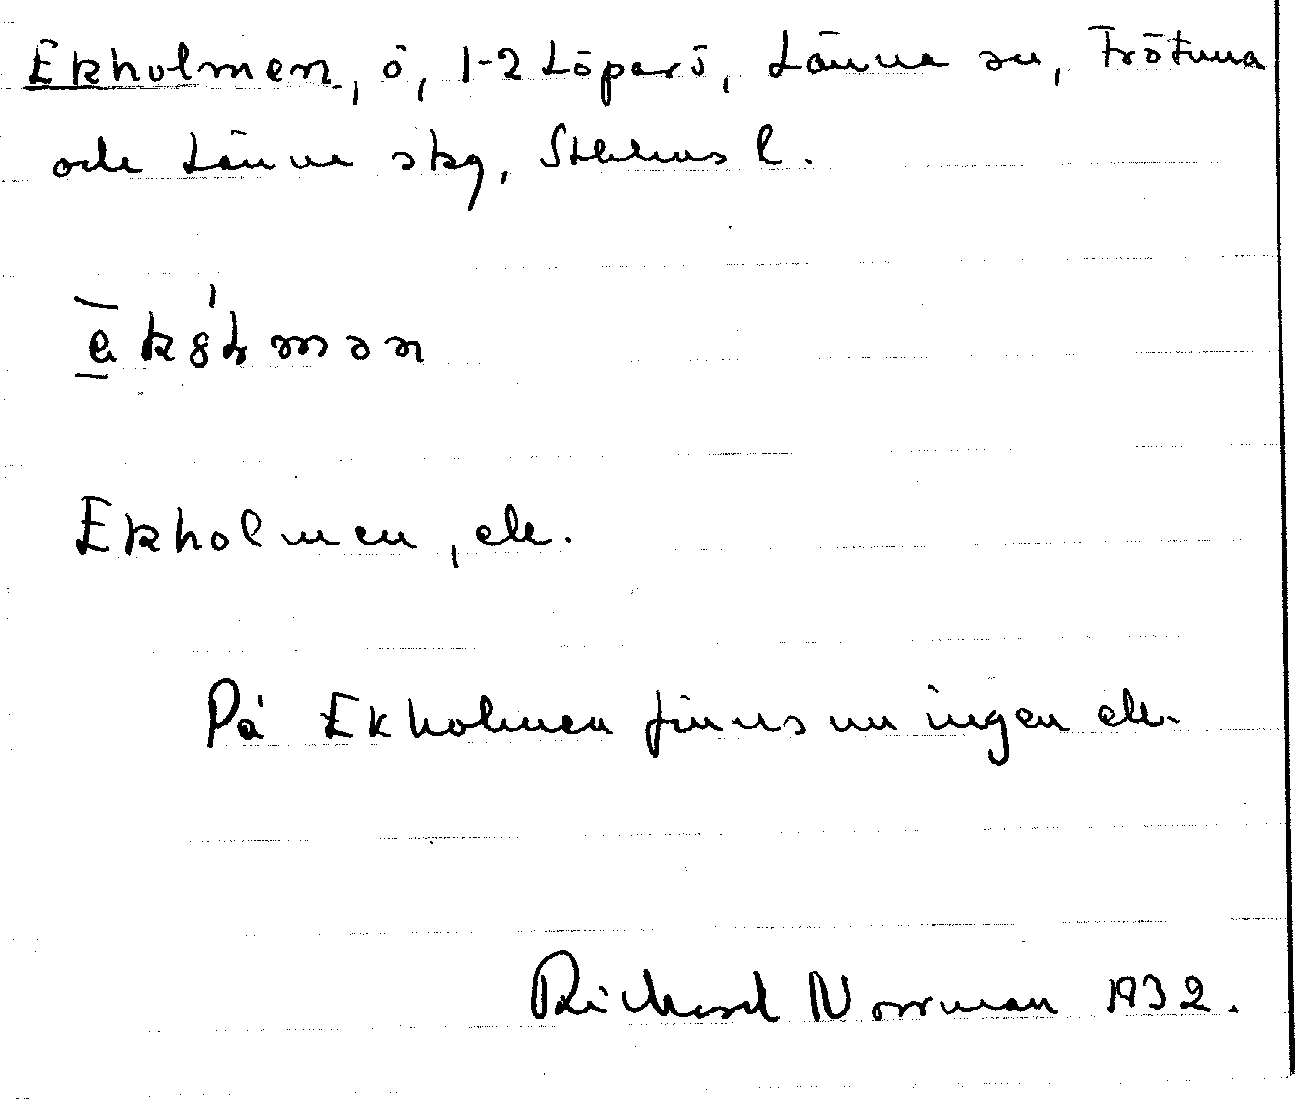 Ekholmen, ö, 1-2 Löparö, Länna sn, Frötuna
och Länna skg, Sthlms l.
Ekholmen, ek.
På Ekholmen finns nu ingen ek.
Richard Norrman 1932.